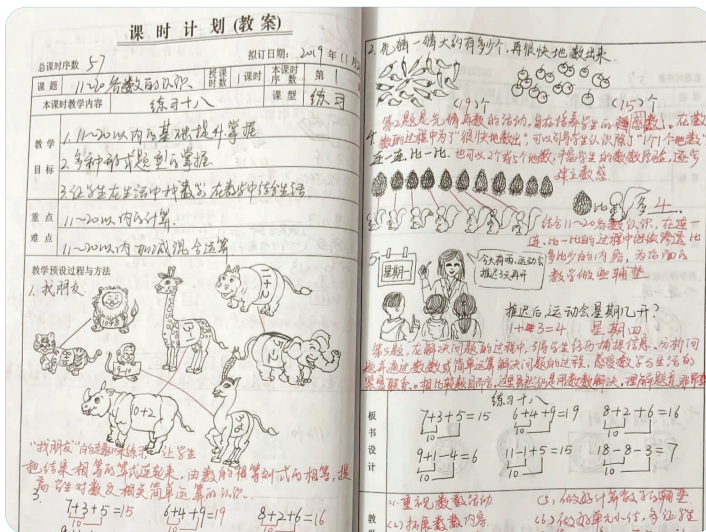 课时计划(教案)
总课时序数 57 拟订日期: 2019年11月
课题 11~20各数的认识 授课时数 1课时 本课时序数 第1
本课时教学内容 练习十八 课型 练习
教学目标
1. 11~20以内的基础提升掌握
2. 多种形式题型的掌握
3. 让学生在生活中种数学,在数学中结合生活.
重点 11~20以内的计算.
难点 11~20以内加减混合运算
教学预设过程与方法
1. 找朋友
10+2
"找朋友"的趣味练习,让学生
把结果相等的算式连起来,由数的相等到式的相等,提
高学生对数及相关简单运算的认识.
3.
7+3+5=15 6+4+9=19 8+2+6=16
10 10 10
2. 先猜一猜大约有多少个,再很快地数出来
(19)个 (15)个
第2题是先猜再数的活动,旨在培养学生的数感. 在数
数的过程中为了"很快地数出",可以引导学生认识除了"1个1个地数"
连一连,比一比. 也可以2个或5个地数,
4.
比 多 4
结合11~20各数认识,在连一
连,比一比的过程中继续渗透比
多比少的内容,为后面的
教学做些铺垫
5.
星期一
今天有雨,运动会推迟3天再开
推迟后,运动会星期几开?
1+3=4 星期四
第5题,在解决问题的过程中,引导学生经历捕捉信息、分析问
题并通过数数或简单运算解决问题的过程,感受数学与生活的
紧密联系.
板书设计
练习十八
7+3+5=15 6+4+9=19 8+2+6=16
10 10 10
9+1-4=6 11-1+5=15 18-8-3=7
10 10 10
教
(1). 重视数数活动
(2) 拓展数数内容